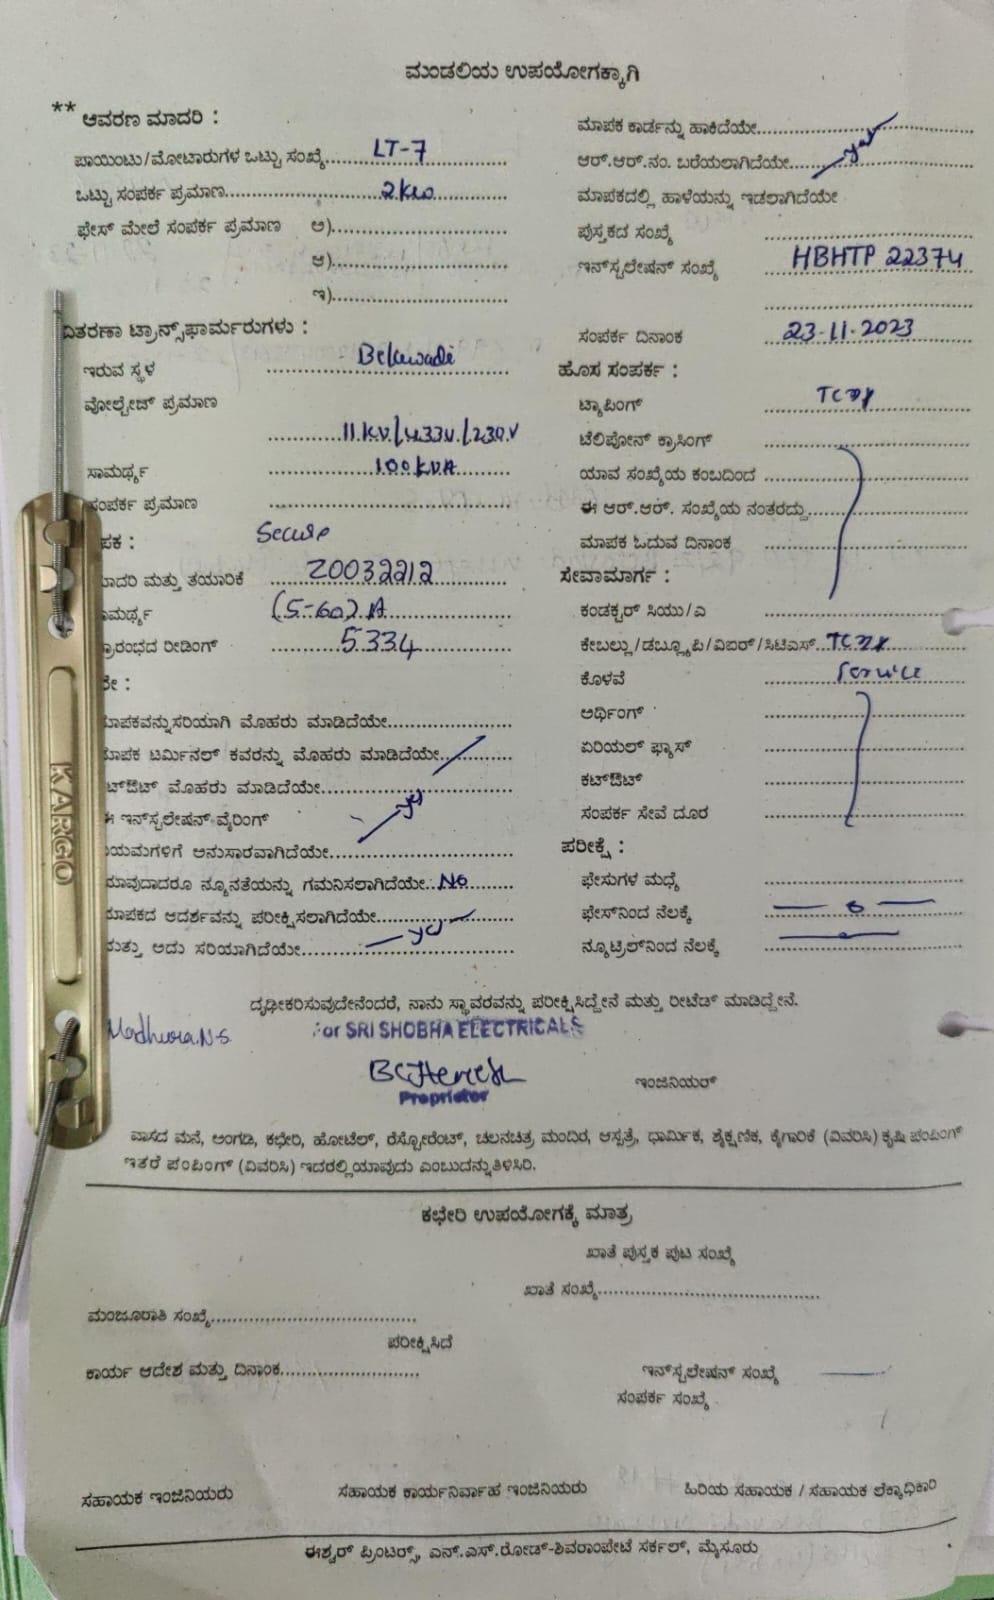 ಮಂಡಲಿಯ ಉಪಯೋಗಕ್ಕಾಗಿ
** ಆವರಣ ಮಾದರಿ :
ಪಾಯಿಂಟು/ಮೋಟಾರುಗಳ ಒಟ್ಟು ಸಂಖ್ಯೆ LT-7
ಒಟ್ಟು ಸಂಪರ್ಕ ಪ್ರಮಾಣ 2kw
ಫೇಸ್ ಮೇಲೆ ಸಂಪರ್ಕ ಪ್ರಮಾಣ ಅ)
ಆ)
ಇ)
ವಿತರಣಾ ಟ್ರಾನ್ಸ್‌ಫಾರ್ಮರುಗಳು :
ಇರುವ ಸ್ಥಳ Belawadi
ವೋಲ್ಟೇಜ್ ಪ್ರಮಾಣ
11KV/433V/230V
ಸಾಮರ್ಥ್ಯ 100KVA
ಸಂಪರ್ಕ ಪ್ರಮಾಣ
ಪಕ : Secure
ಮಾದರಿ ಮತ್ತು ತಯಾರಿಕೆ Z0032212
ಸಾಮರ್ಥ್ಯ (5-60) A
ಪ್ರಾರಂಭದ ರೀಡಿಂಗ್ 5334
ಮಾಪಕವನ್ನು ಸರಿಯಾಗಿ ಮೊಹರು ಮಾಡಿದೆಯೇ
ಮಾಪಕ ಟರ್ಮಿನಲ್ ಕವರನ್ನು ಮೊಹರು ಮಾಡಿದೆಯೇ
ಕಟ್‌ಔಟ್ ಮೊಹರು ಮಾಡಿದೆಯೇ
ಈ ಇನ್‌ಸ್ಟಲೇಷನ್ ವೈರಿಂಗ್ yes
ನಿಯಮಗಳಿಗೆ ಅನುಸಾರವಾಗಿದೆಯೇ
ಯಾವುದಾದರೂ ನ್ಯೂನತೆಯನ್ನು ಗಮನಿಸಲಾಗಿದೆಯೇ No
ಮಾಪಕದ ಆದರ್ಶವನ್ನು ಪರೀಕ್ಷಿಸಲಾಗಿದೆಯೇ
ಮತ್ತು ಅದು ಸರಿಯಾಗಿದೆಯೇ yes
ಮಾಪಕ ಕಾರ್ಡನ್ನು ಹಾಕಿದೆಯೇ
ಆರ್.ಆರ್.ನಂ. ಬರೆಯಲಾಗಿದೆಯೇ yes
ಮಾಪಕದಲ್ಲಿ ಹಾಳೆಯನ್ನು ಇಡಲಾಗಿದೆಯೇ
ಪುಸ್ತಕದ ಸಂಖ್ಯೆ
ಇನ್‌ಸ್ಟಲೇಷನ್ ಸಂಖ್ಯೆ HBHTP 22374
ಸಂಪರ್ಕ ದಿನಾಂಕ 23-11-2023
ಹೊಸ ಸಂಪರ್ಕ :
ಟ್ಯಾಪಿಂಗ್
ಟೆಲಿಫೋನ್ ಕ್ರಾಸಿಂಗ್
ಯಾವ ಸಂಖ್ಯೆಯ ಕಂಬದಿಂದ
ಈ ಆರ್.ಆರ್. ಸಂಖ್ಯೆಯ ನಂತರದ್ದು
ಮಾಪಕ ಓದುವ ದಿನಾಂಕ
ಸೇವಾಮಾರ್ಗ :
ಕಂಡಕ್ಟರ್ ಸಿಯು/ಎ
ಕೇಬಲ್ಲು/ಡಬ್ಲ್ಯೂಪಿ/ವಿಐರ್/ಸಿಟಿಎಸ್
ಕೊಳವೆ Service
ಅರ್ಥಿಂಗ್
ಏರಿಯಲ್ ಫ್ಯೂಸ್
ಕಟ್‌ಔಟ್
ಸಂಪರ್ಕ ಸೇವೆ ದೂರ
ಪರೀಕ್ಷೆ :
ಫೇಸುಗಳ ಮಧ್ಯೆ
ಫೇಸ್‌ನಿಂದ ನೆಲಕ್ಕೆ
ನ್ಯೂಟ್ರಲ್‌ನಿಂದ ನೆಲಕ್ಕೆ
ದೃಢೀಕರಿಸುವುದೇನೆಂದರೆ, ನಾನು ಸ್ಥಾವರವನ್ನು ಪರೀಕ್ಷಿಸಿದ್ದೇನೆ ಮತ್ತು ರೀಟೆಡ್ ಮಾಡಿದ್ದೇನೆ.
For SRI SHOBHA ELECTRICALS
Proprietor
ಇಂಜಿನಿಯರ್
ವಾಸದ ಮನೆ, ಅಂಗಡಿ, ಕಛೇರಿ, ಹೋಟೆಲ್, ರೆಸ್ಟೋರೆಂಟ್, ಚಲನಚಿತ್ರ ಮಂದಿರ, ಆಸ್ಪತ್ರೆ, ಧಾರ್ಮಿಕ, ಶೈಕ್ಷಣಿಕ, ಕೈಗಾರಿಕೆ (ವಿವರಿಸಿ) ಕೃಷಿ ಪಂಪಿಂಗ್
ಇತರೆ ಪಂಪಿಂಗ್ (ವಿವರಿಸಿ) ಇದರಲ್ಲಿ ಯಾವುದು ಎಂಬುದನ್ನು ತಿಳಿಸಿರಿ.
ಕಛೇರಿ ಉಪಯೋಗಕ್ಕೆ ಮಾತ್ರ
ಖಾತೆ ಪುಸ್ತಕ ಪುಟ ಸಂಖ್ಯೆ
ಖಾತೆ ಸಂಖ್ಯೆ
ಮಂಜೂರಾತಿ ಸಂಖ್ಯೆ
ಪರೀಕ್ಷಿಸಿದೆ
ಕಾರ್ಯ ಆದೇಶ ಮತ್ತು ದಿನಾಂಕ
ಇನ್‌ಸ್ಟಲೇಷನ್ ಸಂಖ್ಯೆ
ಸಂಪರ್ಕ ಸಂಖ್ಯೆ
ಸಹಾಯಕ ಇಂಜಿನಿಯರು ಸಹಾಯಕ ಕಾರ್ಯನಿರ್ವಾಹ ಇಂಜಿನಿಯರು ಹಿರಿಯ ಸಹಾಯಕ / ಸಹಾಯಕ ಲೆಕ್ಕಾಧಿಕಾರಿ
ಈಶ್ವರ್ ಪ್ರಿಂಟರ್ಸ್, ಎನ್.ಎಸ್.ರೋಡ್-ಶಿವರಾಂಪೇಟೆ ಸರ್ಕಲ್, ಮೈಸೂರು
KARGO